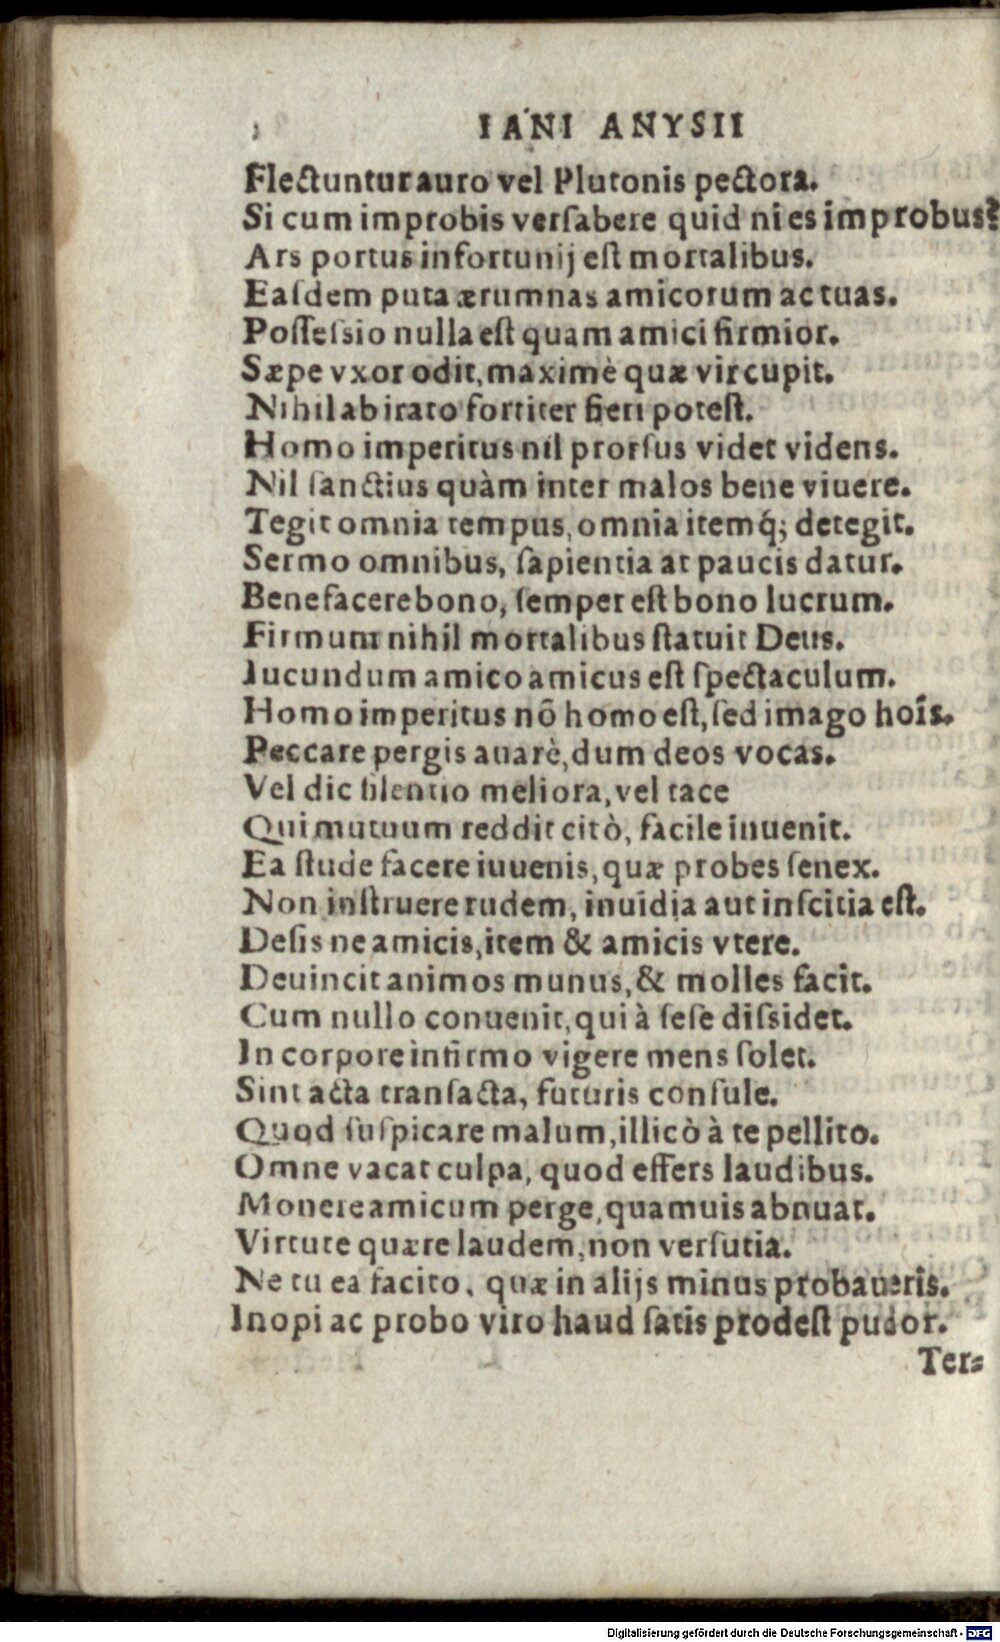 IANI ANYSII
Flectuntur auro vel Plutonis pectora.
Si cum improbis versabere quid ni es improbus?
Ars portus infortunij est mortalibus.
Easdem puta ærumnas amicorum ac tuas.
Possessio nulla est quam amici firmior.
Sæpe vxor odit, maximè quæ vir cupit.
Nihil ab irato fortiter fieri potest.
Homo imperitus nil prorsus videt videns.
Nil sanctius quàm inter malos bene viuere.
Tegit omnia tempus, omnia itemq́; detegit.
Sermo omnibus, sapientia at paucis datur.
Benefacere bono, semper est bono lucrum.
Firmum nihil mortalibus statuit Deus.
Iucundum amico amicus est spectaculum.
Homo imperitus nō homo est, sed imago hoīs.
Peccare pergis auarè, dum deos vocas.
Vel dic silentio meliora, vel tace
Qui mutuum reddit citò, facile inuenit.
Ea stude facere iuuenis, quæ probes senex.
Non instruere rudem, inuidia aut inscitia est.
Desis ne amicis, item & amicis vtere.
Deuincit animos munus, & molles facit.
Cum nullo conuenit, qui à sese dissidet.
In corpore infirmo vigere mens solet.
Sint acta transacta, futuris consule.
Quod suspicare malum, illicò à te pellito.
Omne vacat culpa, quod effers laudibus.
Monere amicum perge, quamuis abnuat.
Virtute quære laudem, non versutia.
Ne tu ea facito, quæ in alijs minus probaueris.
Inopi ac probo viro haud satis prodest pudor.
Ter=
Digitalisierung gefördert durch die Deutsche Forschungsgemeinschaft - DFG